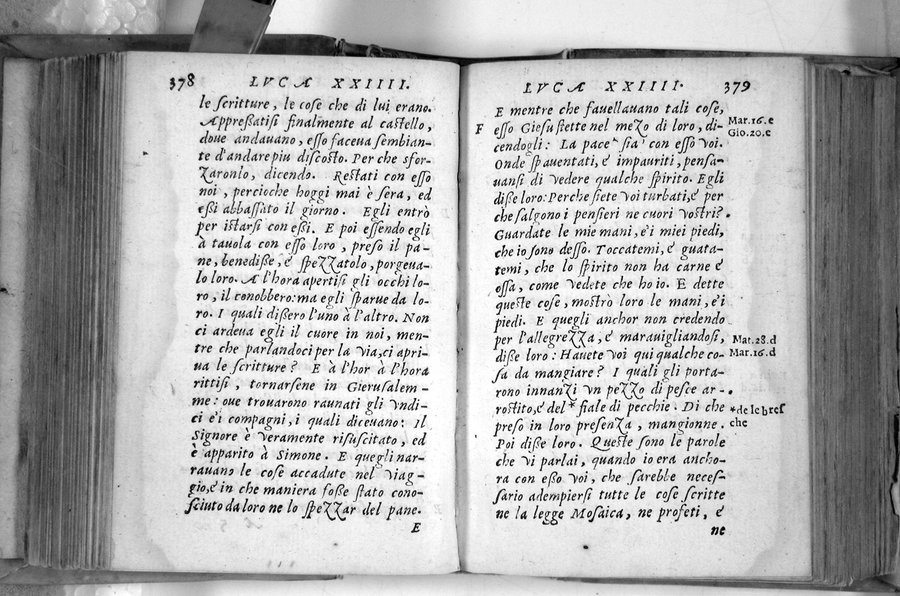 378 LVCÆ XXIIII.
le scritture, le cose che di lui erano.
Appreßatisi finalmente al castello,
doue andauano, esso faceua sembian-
te d'andare piu discosto. Per che sfor-
zaronlo, dicendo. Restati con esso
noi, percioche hoggi mai è sera, ed
eßi abbassato il giorno. Egli entrò
per istarsi con eßi. E poi essendo egli
à tauola con esso loro, preso il pa-
ne, benediße, e speZZatolo, porgeua-
lo loro. A l'hora apertisi gli occhi lo-
ro, il conobbero: ma egli sparue da lo-
ro. I quali dißero l'uno à l'altro. Non
ci ardeua egli il cuore in noi, men-
tre che parlandoci per la via, ci apri-
ua le scritture? E à l'hor à l'hora
rittisi, tornarsene in Gierusalem-
me: oue trouarono raunati gli vndi-
ci e i compagni, i quali diceuano: Il
Signore è veramente risuscitato, ed
è apparito à Simone. E quegli nar-
rauano le cose accadute nel viag-
gio, e in che maniera foße stato cono-
sciuto da loro ne lo speZZar del pane.
E
LVCÆ XXIIII. 379
E mentre che fauellauano tali cose,
F esso Giesu stette nel meZo di loro, di-
cendogli: La pace sia con esso voi.
Onde spauentati, e impauriti, pensa-
uansi di vedere qualche spirito. Egli
diße loro: Perche siete voi turbati, e per
che salgono i pensieri ne cuori vostri?
Guardate le mie mani, e i miei piedi,
che io sono desso. Toccatemi, e guata-
temi, che lo spirito non ha carne e
ossa, come vedete che ho io. E dette
queste cose, mostrò loro le mani, e i
piedi. E quegli anchor non credendo
per l'allegreZZa, e marauigliandosi,
diße loro: Hauete voi qui qualche co-
sa da mangiare? I quali gli porta-
rono innanZi vn peZZo di pesce ar-
rostito, e del * fiale di pecchie. Di che
preso in loro presenZa, mangionne.
Poi diße loro. Queste sono le parole
che vi parlai, quando io era ancho-
ra con eßo voi, che sarebbe neces-
sario adempiersi tutte le cose scritte
ne la legge Mosaica, ne profeti, e
ne
Mar. 16. e
Gio. 20. e
Mat. 28. d
Mar. 16. d
*de le bres
che